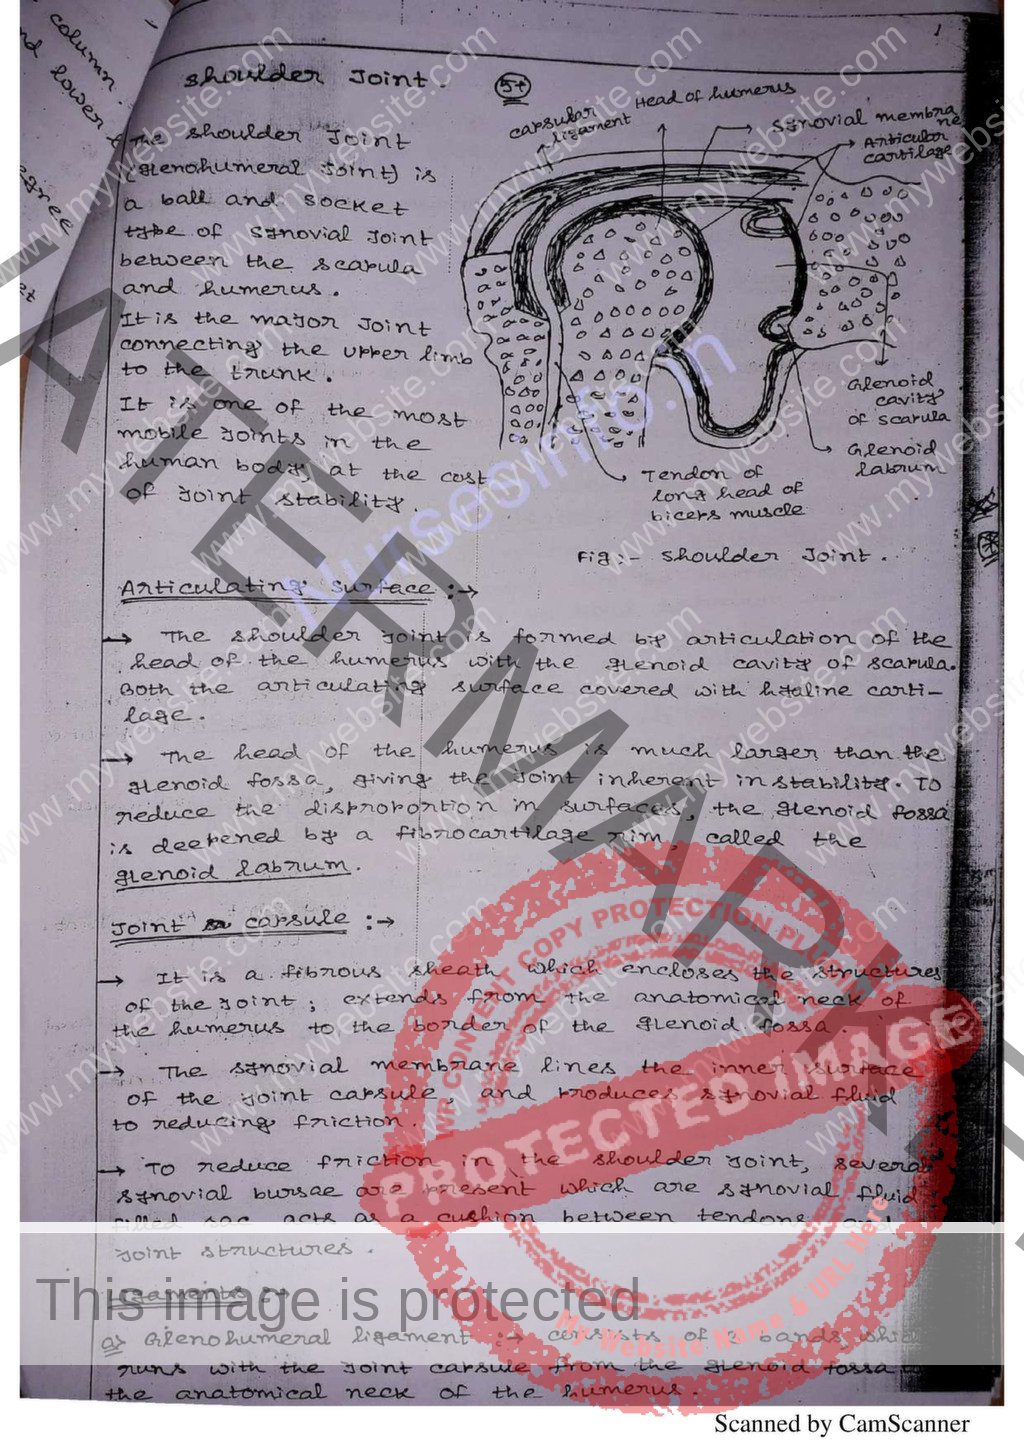 column.
lower
egree
1
Shoulder Joint.
The shoulder Joint
(glenohumeral Joint) is
a ball and socket
type of synovial Joint
between the scapula
and humerus.
It is the major Joint
connecting the upper limb
to the trunk.
It is one of the most
mobile Joints in the
human body, at the cost
of joint stability.
capsular
ligament
Head of humerus
synovial membra
ne
Articular
cartilage
Glenoid
cavity
of scapula
Glenoid
labrum
Tendon of
long head of
biceps muscle
Fig:- Shoulder Joint.
Articulating surface :→
→ The shoulder joint is formed by articulation of the
head of the humerus with the glenoid cavity of scapula.
Both the articulating surface covered with hyaline carti-
lage.
→ The head of the humerus is much larger than the
glenoid fossa, giving the joint inherent instability. To
reduce the disproportion in surfaces, the glenoid fossa
is deepened by a fibrocartilage rim, called the
glenoid labrum.
Joint capsule :→
→ It is a fibrous sheath which encloses the structures
of the joint; extends from the anatomical neck of
the humerus to the border of the glenoid fossa.
→ The synovial membrane lines the inner surface
of the joint capsule, and produces synovial fluid
to reducing friction.
→ To reduce friction in the shoulder joint, several
synovial bursae are present which are synovial fluid
filled sac acts as a cushion between tendons and
joint structures.
Ligaments :→
a) Glenohumeral ligament :→ consists of 3 bands which
runs with the joint capsule from the glenoid fossa
the anatomical neck of the humerus.
WATERMARK
www.mywebsite.com
Nurseship.in
WP CONTENT COPY PROTECTION PLUGIN
PROTECTED IMAGE
My Website Name & URL Here
This image is protected
Scanned by CamScanner